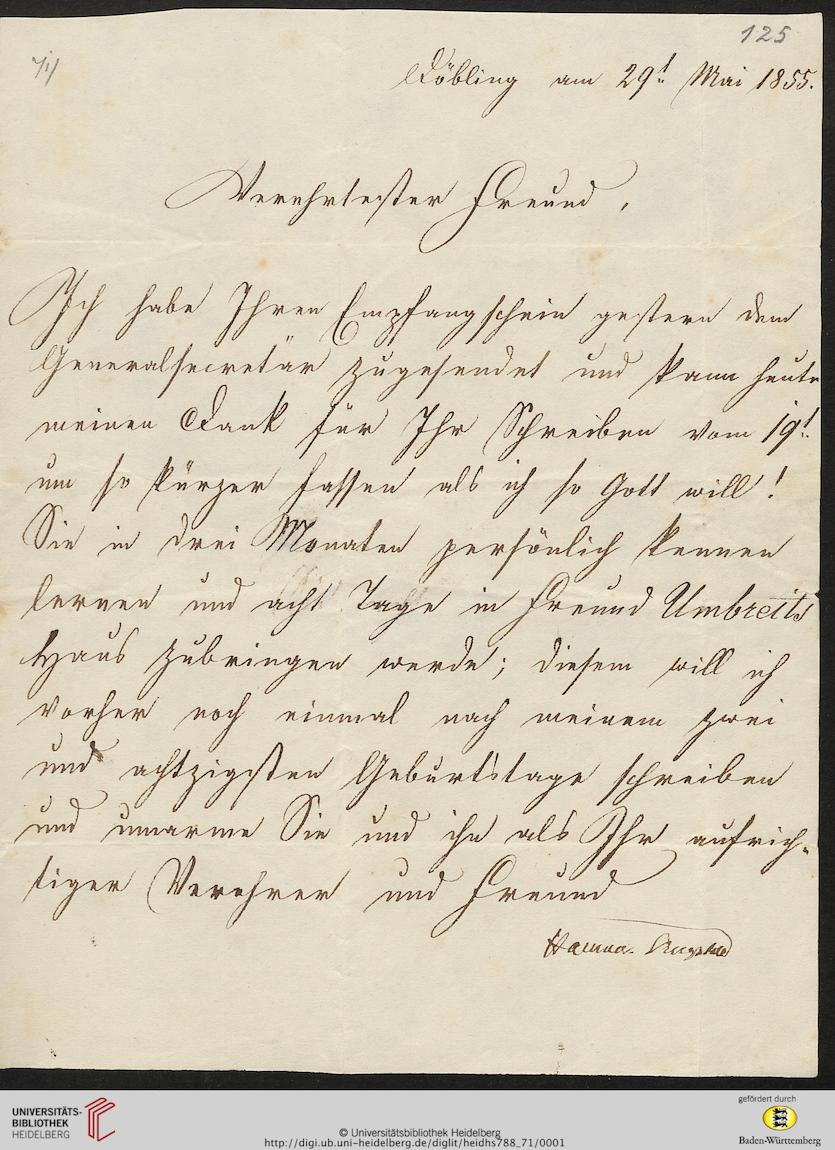 125
Döbling am 29t. Mai 1855.
Verehrtester Freund,
Ich habe Ihren Empfangschein gestern dem
Generalsecretär zugesendet und kann heute
meinen Dank für Ihr Schreiben vom 19t.
um so kürzer fassen als ich so Gott will!
Sie in drei Monaten persönlich kennen
lernen und acht Tage in Freund Umbreits
Haus zubringen werde; diesem will ich
vorher noch einmal nach meinem zwei
und achtzigsten Geburtstage schreiben
und umarme Sie und ihn als Ihr aufrich-
tiger Verehrer und Freund
UNIVERSITÄTS-
BIBLIOTHEK
HEIDELBERG
© Universitätsbibliothek Heidelberg
http://digi.ub.uni-heidelberg.de/diglit/heidhs788_71/0001
gefördert durch
Baden-Württemberg